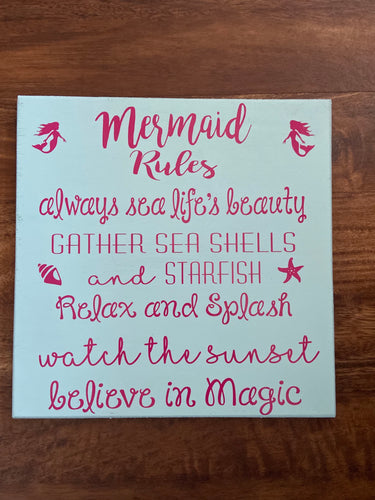 Mermaid
Rules
always sea life's beauty
GATHER SEA SHELLS
and STARFISH
Relax and Splash
watch the sunset
believe in Magic